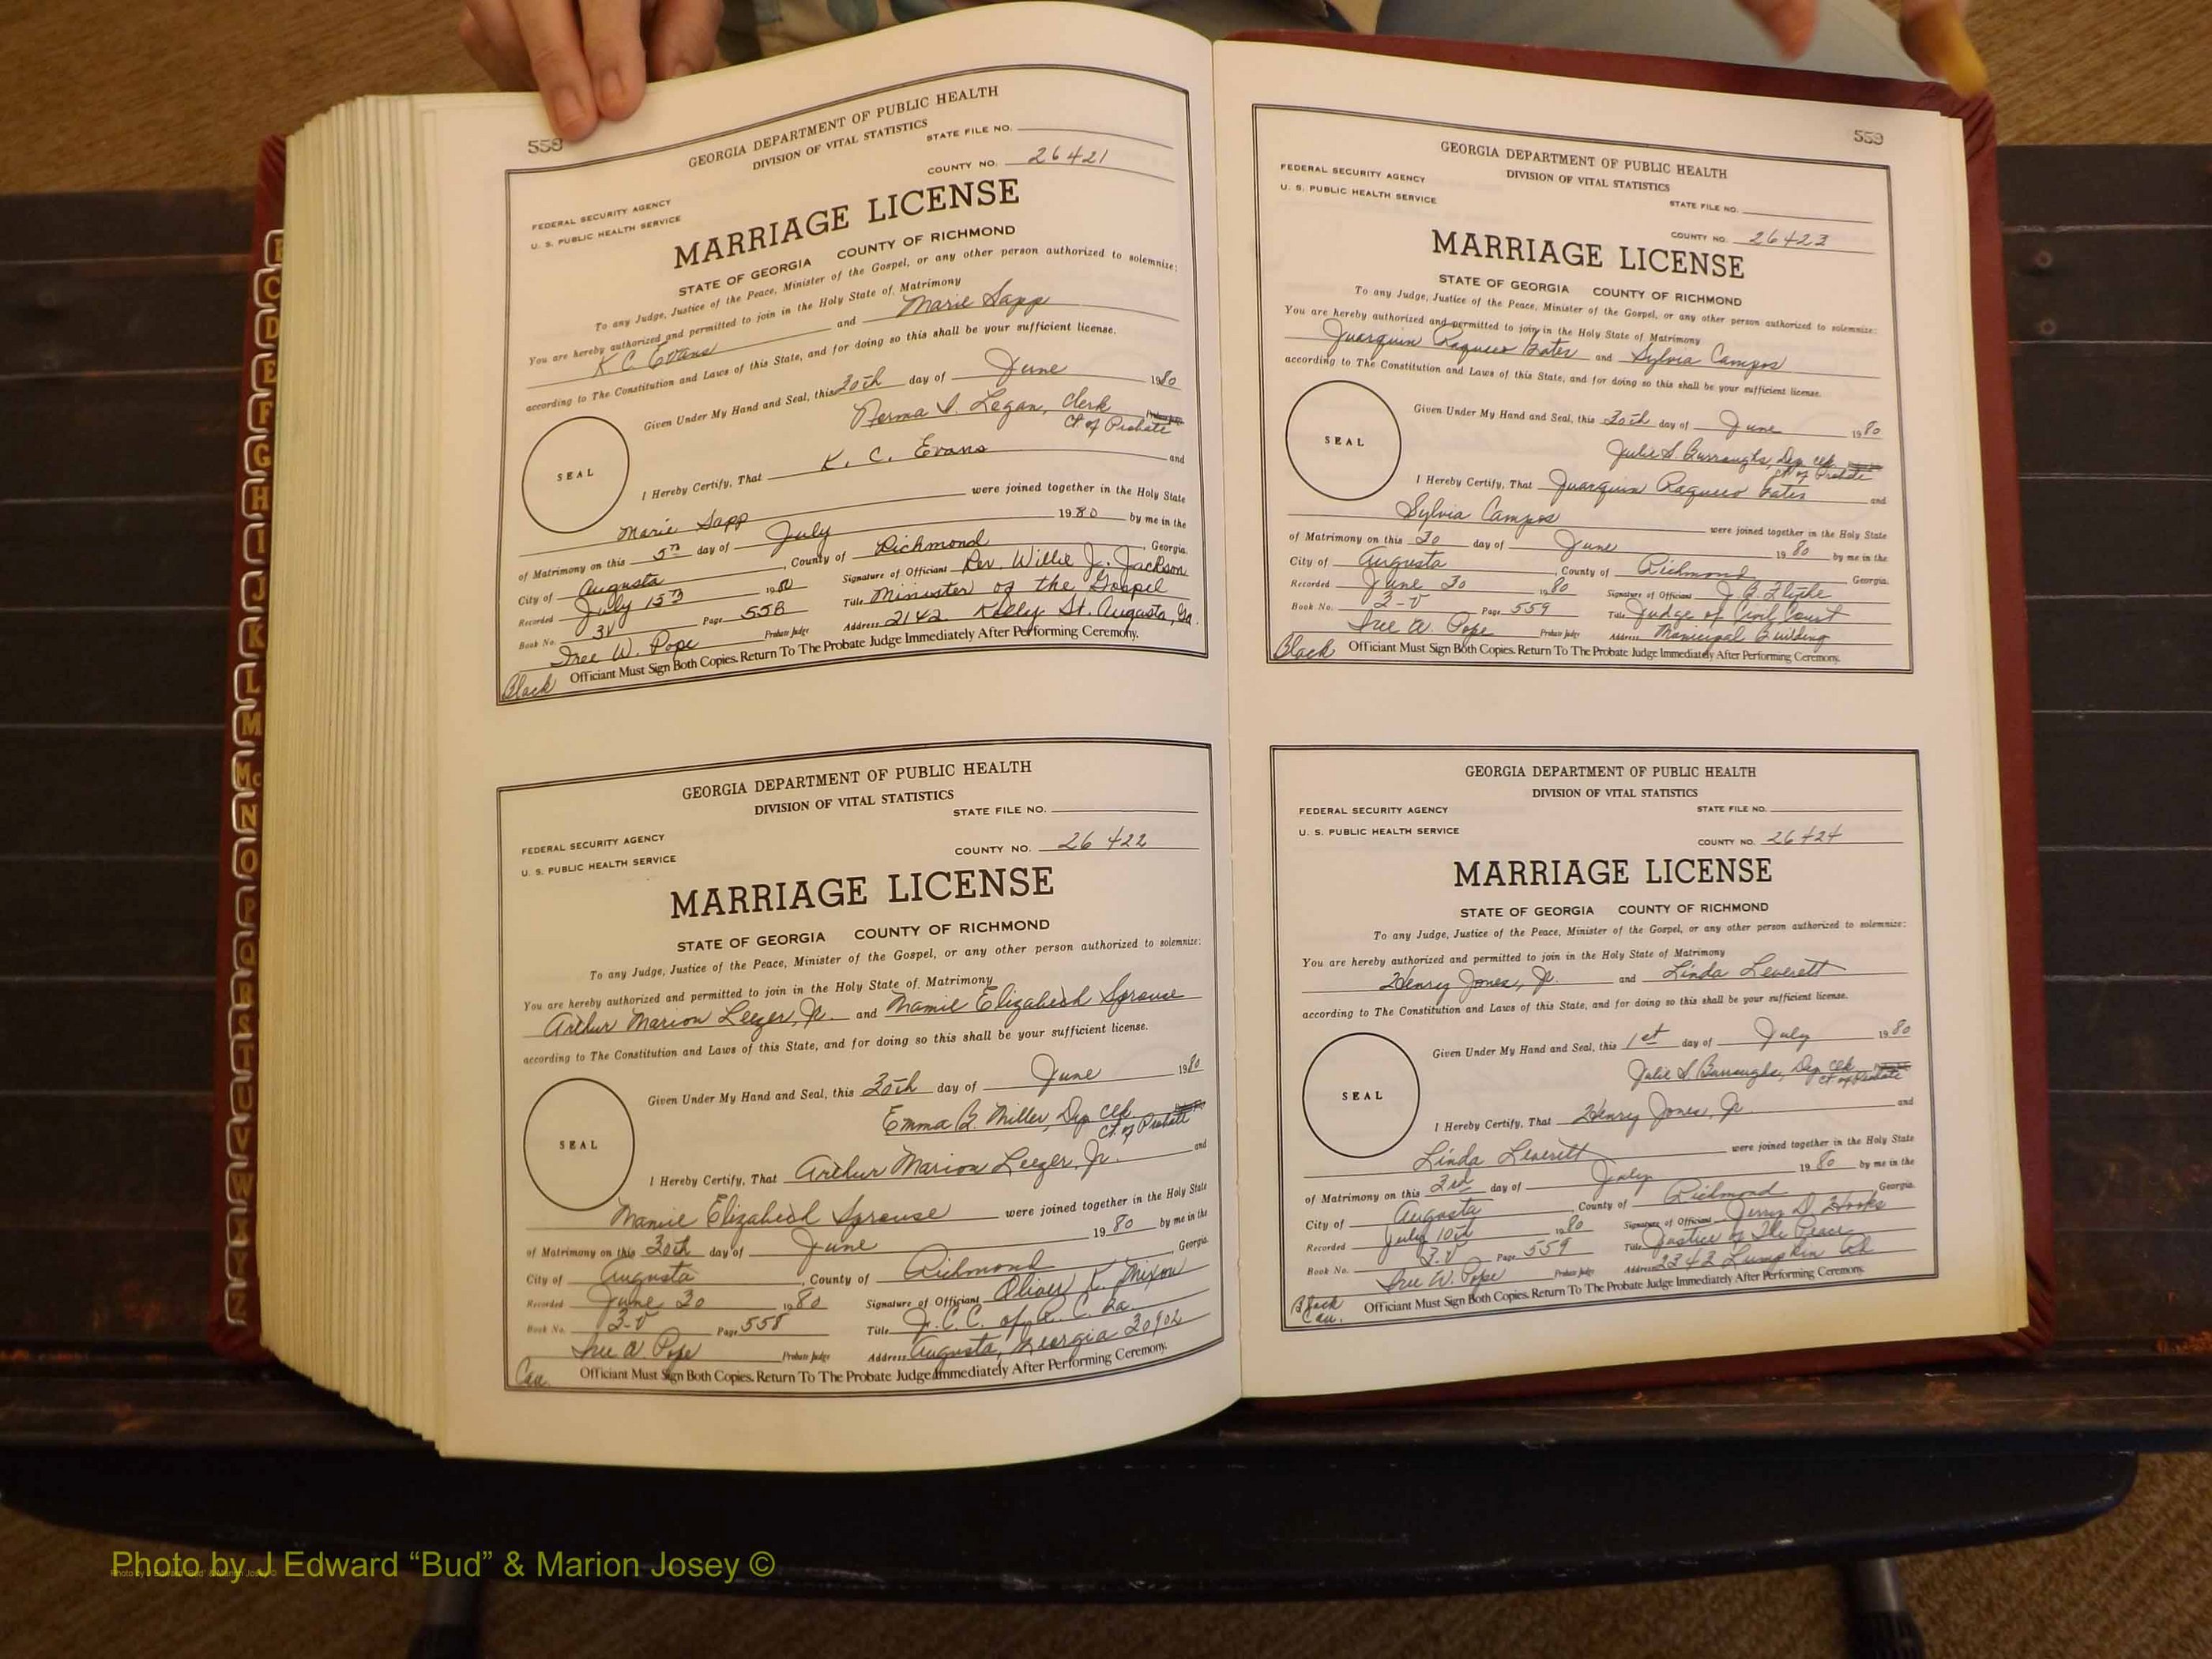 558
GEORGIA DEPARTMENT OF PUBLIC HEALTH
DIVISION OF VITAL STATISTICS
STATE FILE NO.
COUNTY NO. 26421
FEDERAL SECURITY AGENCY
U. S. PUBLIC HEALTH SERVICE
MARRIAGE LICENSE
STATE OF GEORGIA COUNTY OF RICHMOND
To any Judge, Justice of the Peace, Minister of the Gospel, or any other person authorized to solemnize:
You are hereby authorized and permitted to join in the Holy State of Matrimony
K C. Evans and Marie Sapp
according to The Constitution and Laws of this State, and for doing so this shall be your sufficient license.
Given Under My Hand and Seal, this 30th day of June 1980
Logan, Clerk
Ct. of Probate
SEAL
I Hereby Certify, That K. C. Evans and
Marie Sapp were joined together in the Holy State
of Matrimony on this 5th day of July 1980 by me in the
City of Augusta, County of Richmond, Georgia.
Recorded July 15th 1980 Signature of Officiant Rev. Willie J. Jackson
Book No. 3V Page 558 Title Minister of the Gospel
W. Pope Probate Judge Address 2142 Kelly St. Augusta, Ga.
Black Officiant Must Sign Both Copies. Return To The Probate Judge Immediately After Performing Ceremony.
GEORGIA DEPARTMENT OF PUBLIC HEALTH
DIVISION OF VITAL STATISTICS
STATE FILE NO.
FEDERAL SECURITY AGENCY
U. S. PUBLIC HEALTH SERVICE
COUNTY NO. 26 422
MARRIAGE LICENSE
STATE OF GEORGIA COUNTY OF RICHMOND
To any Judge, Justice of the Peace, Minister of the Gospel, or any other person authorized to solemnize:
You are hereby authorized and permitted to join in the Holy State of Matrimony
Arthur Marion Leezer, Jr. and Mamie Elizabeth Sprouse
according to The Constitution and Laws of this State, and for doing so this shall be your sufficient license.
Given Under My Hand and Seal, this 30th day of June 1980
Emma B. Miller, Dep Clk
Ct. of Probate
SEAL
I Hereby Certify, That Arthur Marion Leezer, Jr. and
Mamie Elizabeth Sprouse were joined together in the Holy State
of Matrimony on this 30th day of June 1980 by me in the
City of Augusta, County of Richmond, Georgia.
Recorded June 30 1980 Signature of Officiant Oliver K. Mixon
Book No. 3-V Page 558 Title J.C.C. of R. C. Ga.
Pope Probate Judge Address Augusta, Georgia 30902
Cau. Officiant Must Sign Both Copies. Return To The Probate Judge Immediately After Performing Ceremony.
559
GEORGIA DEPARTMENT OF PUBLIC HEALTH
DIVISION OF VITAL STATISTICS
FEDERAL SECURITY AGENCY
U. S. PUBLIC HEALTH SERVICE
STATE FILE NO.
COUNTY NO. 26423
MARRIAGE LICENSE
STATE OF GEORGIA COUNTY OF RICHMOND
To any Judge, Justice of the Peace, Minister of the Gospel, or any other person authorized to solemnize:
You are hereby authorized and permitted to join in the Holy State of Matrimony
Juarquin and Sylvia Campos
according to The Constitution and Laws of this State, and for doing so this shall be your sufficient license.
Given Under My Hand and Seal, this 30th day of June 1980
Julie S. Burroughs, Dep Clk
Ct of Probate
SEAL
I Hereby Certify, That Juarquin and
Sylvia Campos were joined together in the Holy State
of Matrimony on this 30 day of June 1980 by me in the
City of Augusta, County of Richmond, Georgia.
Recorded June 30 1980 Signature of Officiant J. B.
Book No. 3-V Page 559 Title Judge of Civil Court
Pope Probate Judge Address Municipal Building
Black Officiant Must Sign Both Copies. Return To The Probate Judge Immediately After Performing Ceremony.
GEORGIA DEPARTMENT OF PUBLIC HEALTH
DIVISION OF VITAL STATISTICS
FEDERAL SECURITY AGENCY STATE FILE NO.
U. S. PUBLIC HEALTH SERVICE
COUNTY NO. 26424
MARRIAGE LICENSE
STATE OF GEORGIA COUNTY OF RICHMOND
To any Judge, Justice of the Peace, Minister of the Gospel, or any other person authorized to solemnize:
You are hereby authorized and permitted to join in the Holy State of Matrimony
Henry Jones, Jr. and Linda Leverett
according to The Constitution and Laws of this State, and for doing so this shall be your sufficient license.
Given Under My Hand and Seal, this 1st day of July 1980
Julie S. Burroughs, Dep Clk
Ct of Probate
SEAL
I Hereby Certify, That Henry Jones, Jr. and
Linda Leverett were joined together in the Holy State
of Matrimony on this 3rd day of July 1980 by me in the
City of Augusta, County of Richmond Georgia.
Recorded July 10th 1980 Signature of Officiant Jerry D. Hooks
Book No. 3-V Page 559 Title Justice of The Peace
W. Pope Probate Judge Address 2342 Lumpkin Rd
Black
Cau. Officiant Must Sign Both Copies. Return To The Probate Judge Immediately After Performing Ceremony.
C
D
E
F
G
H
I
J
K
L
M
Mc
N
O
P
Q
R
S
T
U
V
W
X
Y
Z
Photo by J Edward “Bud” & Marion Josey ©